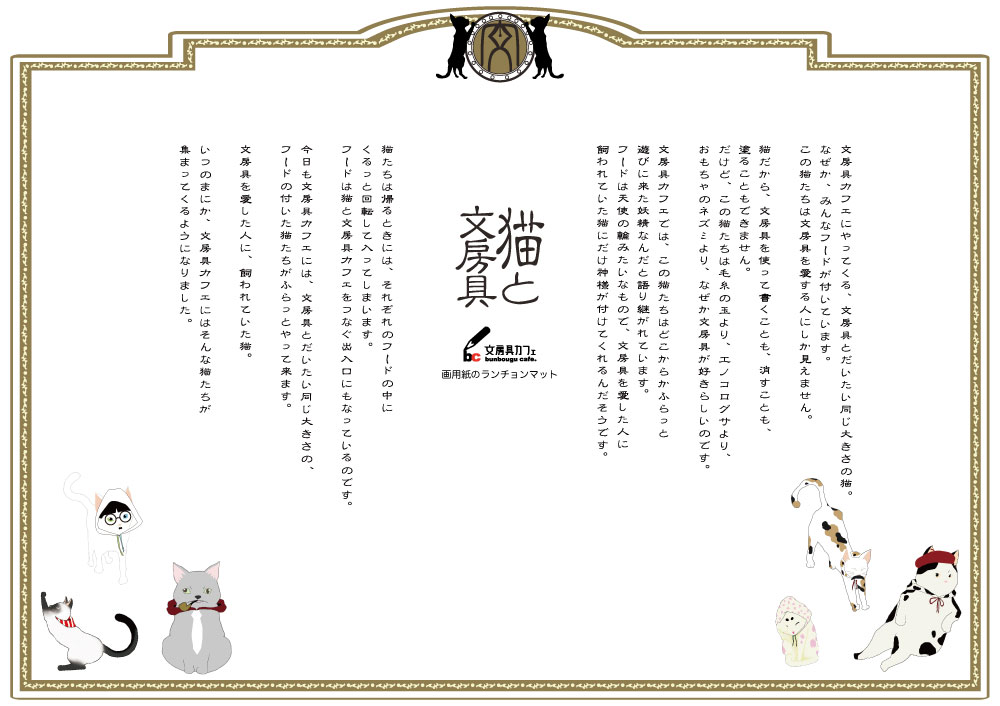 文
文房具カフェにやってくる、文房具とだいたい同じ大きさの猫。
なぜか、みんなフードが付いています。
この猫たちは文房具を愛する人にしか見えません。
猫だから、文房具を使って書くことも、消すことも、
塗ることもできません。
だけど、この猫たちは毛糸の玉より、エノコログサより、
おもちゃのネズミより、なぜか文房具が好きらしいのです。
文房具カフェでは、この猫たちはどこからかふらっと
遊びに来た妖精なんだと語り継がれています。
フードは天使の輪みたいなもので、文房具を愛した人に
飼われていた猫にだけ神様が付けてくれるんだそうです。
猫と
文房具
bc 文房具カフェ
bunbougu cafe.
画用紙のランチョンマット
猫たちは帰るときには、それぞれのフードの中に
くるっと回転して入ってしまいます。
フードは猫と文房具カフェをつなぐ出入口にもなっているのです。
今日も文房具カフェには、文房具とだいたい同じ大きさの、
フードの付いた猫たちがふらっとやって来ます。
文房具を愛した人に、飼われていた猫。
いつのまにか、文房具カフェにはそんな猫たちが
集まってくるようになりました。